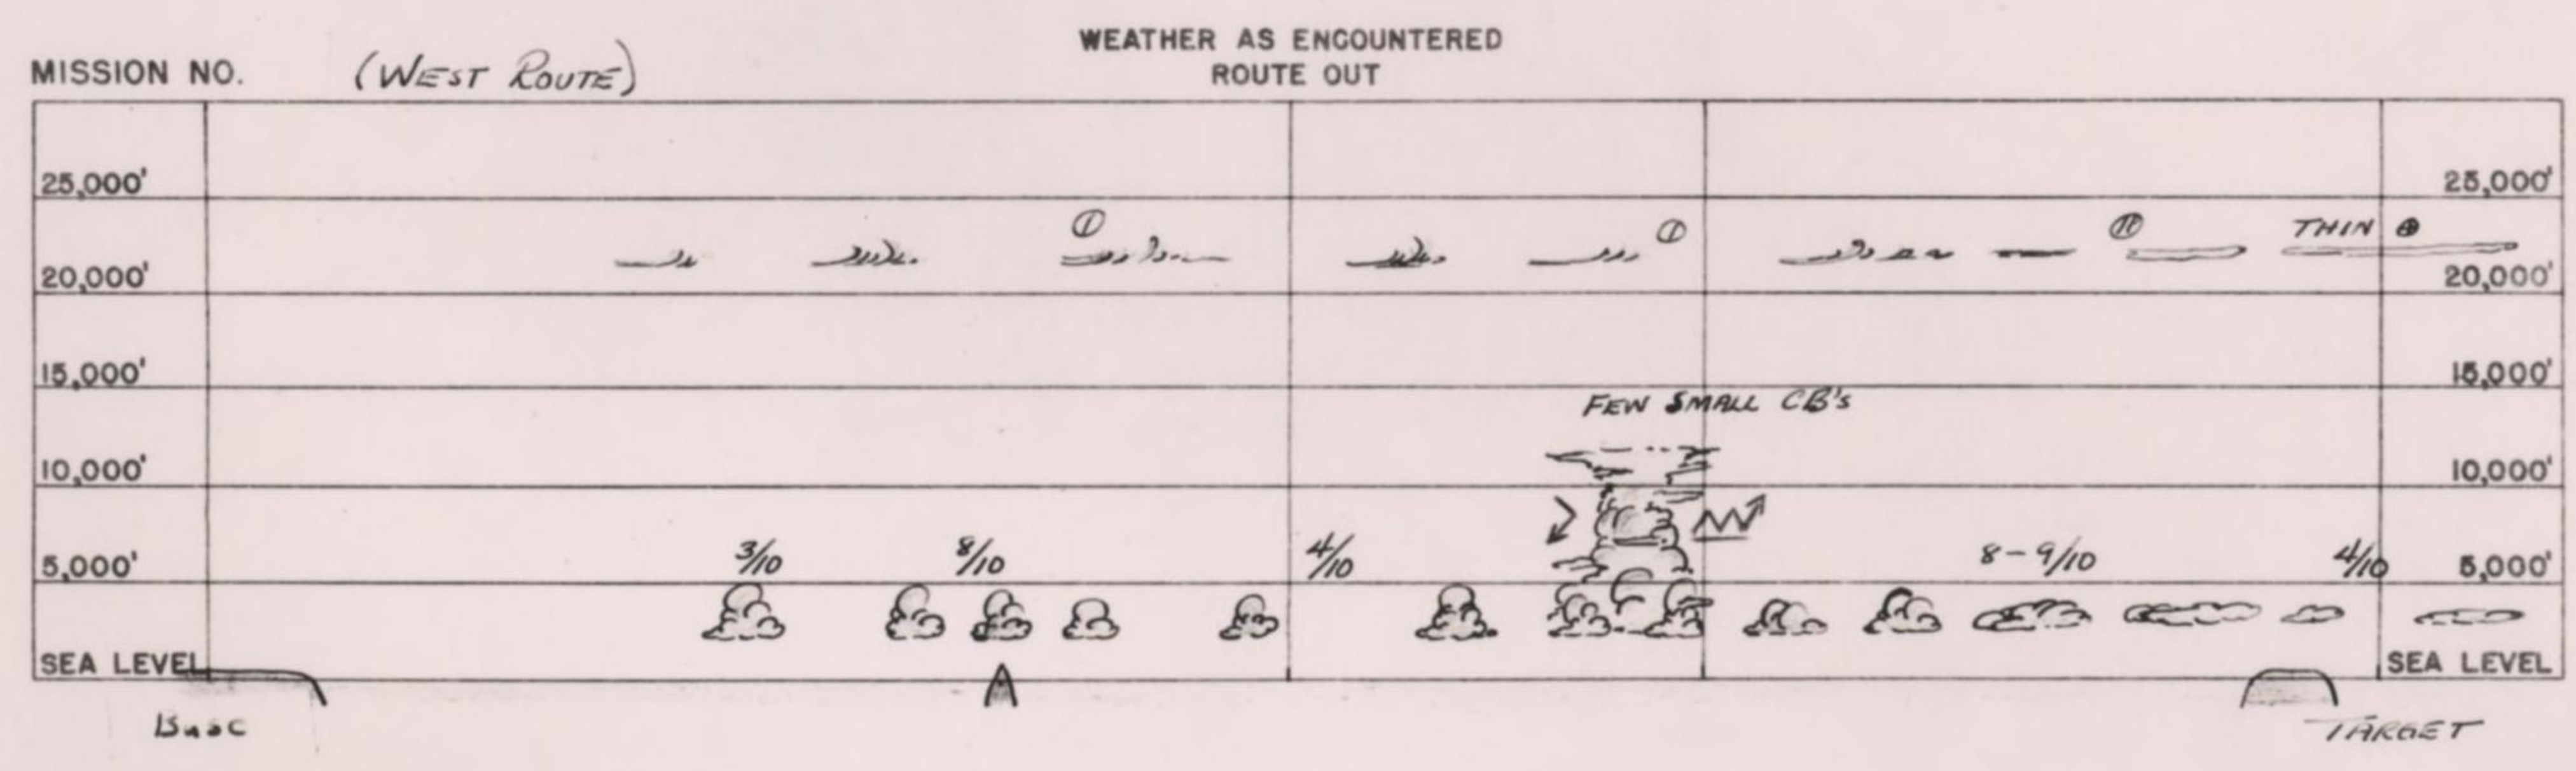 WEATHER AS ENCOUNTERED
MISSION NO. (WEST ROUTE) ROUTE OUT
25,000' 25,000'
THIN
20,000' 20,000'
15,000' 15,000'
FEW SMALL CB's
10,000' 10,000'
3/10 8/10 4/10 8-9/10 4/10
5,000' 5,000'
SEA LEVEL SEA LEVEL
Base TARGET